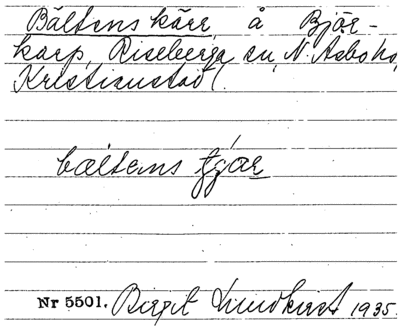 Bältens kärr å Björ-
karp, Riseberga sn, N. Åsbo hd,
Kristianstad l.
bæltens
Nr 5501. Birgit Lundkvist 1935.